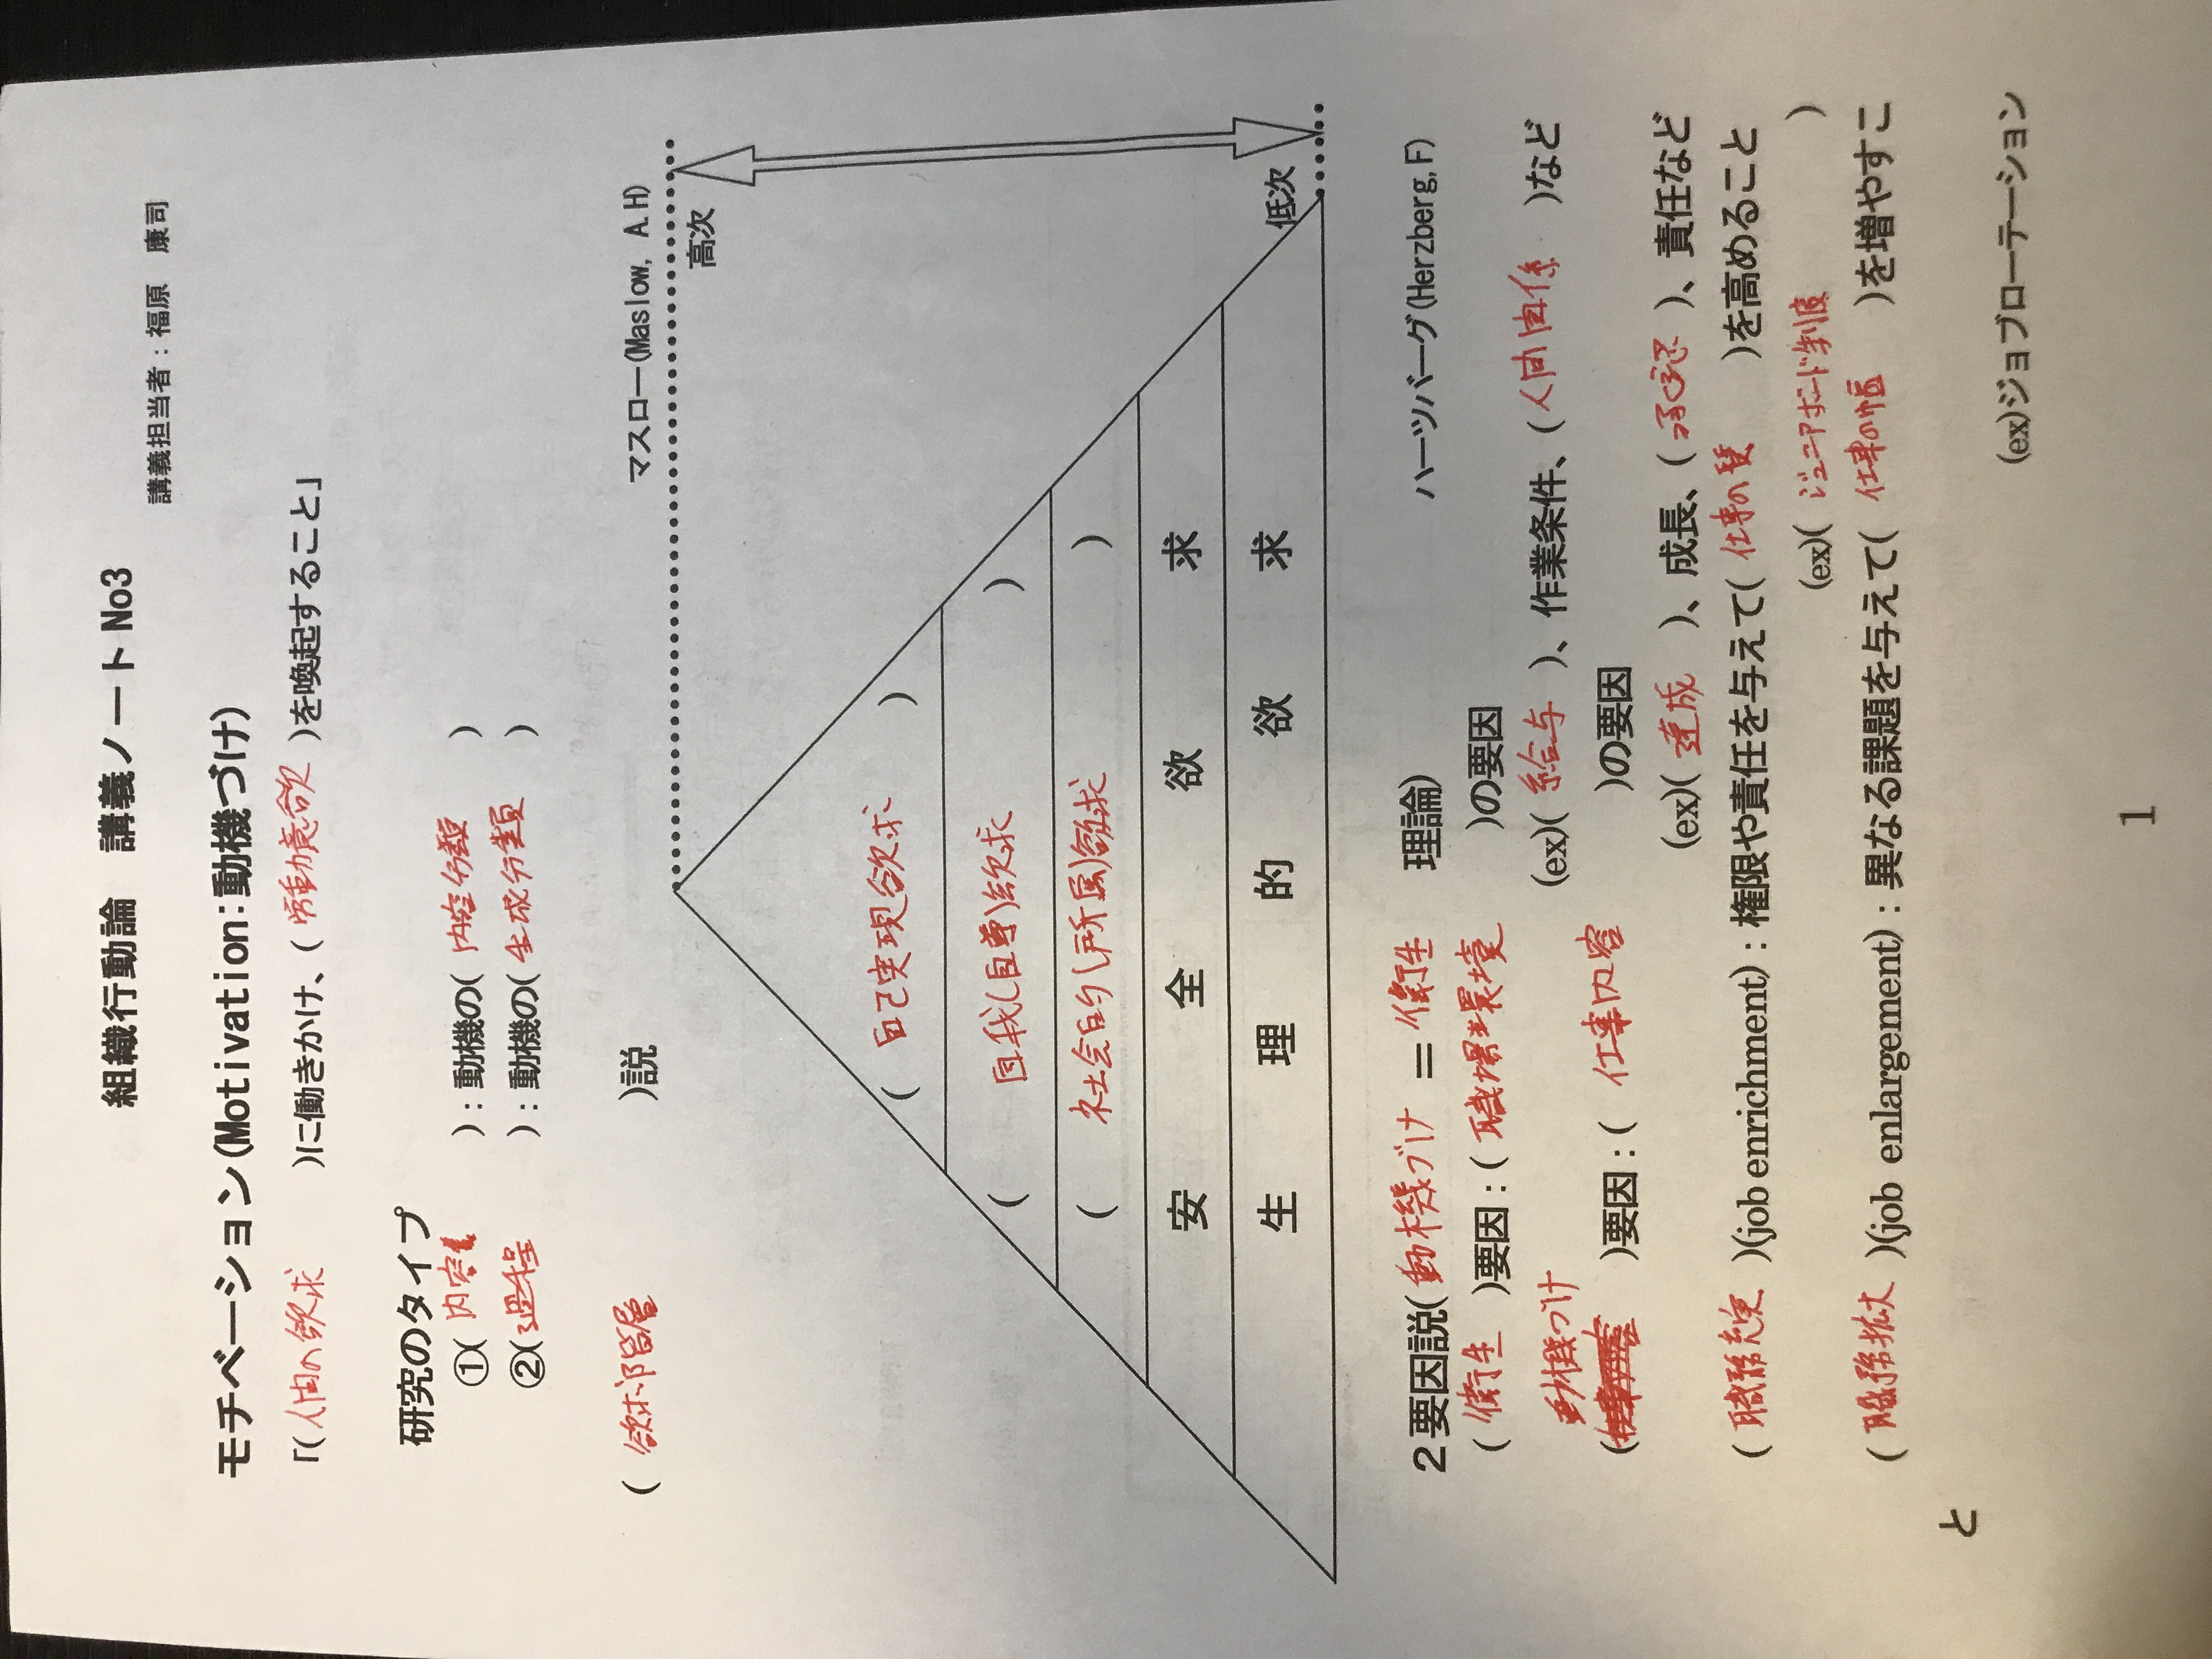 組織行動論　講義ノート No3
講義担当者：福原　康司
モチベーション(Motivation:動機づけ)
「(人間の欲求)に働きかけ、(労動意欲)を喚起すること」
研究のタイプ
①(内容)：動機の(内容分類)
②(過程)：動機の(生成分類)
(欲求階層)説
マスロー(Maslow, A.H)
高次
(自己実現欲求)
(自我(自尊)欲求)
(社会的(所属)欲求)
安全欲求
生理的欲求
低次
2要因説(動機づけ＝衛生 理論)
ハーツバーグ(Herzberg,F)
(衛生)要因：(職場環境)の要因
(ex)(給与)、作業条件、(人間関係)など
動機づけ
( )要因：(仕事内容)の要因
(ex)(達成)、成長、(承認)、責任など
(職務充実)(job enrichment)：権限や責任を与えて(仕事の質)を高めること
(ex)(ジュニアボード制度)
(職務拡大)(job enlargement)：異なる課題を与えて(仕事の幅)を増やすこ
と
(ex)ジョブローテーション
1